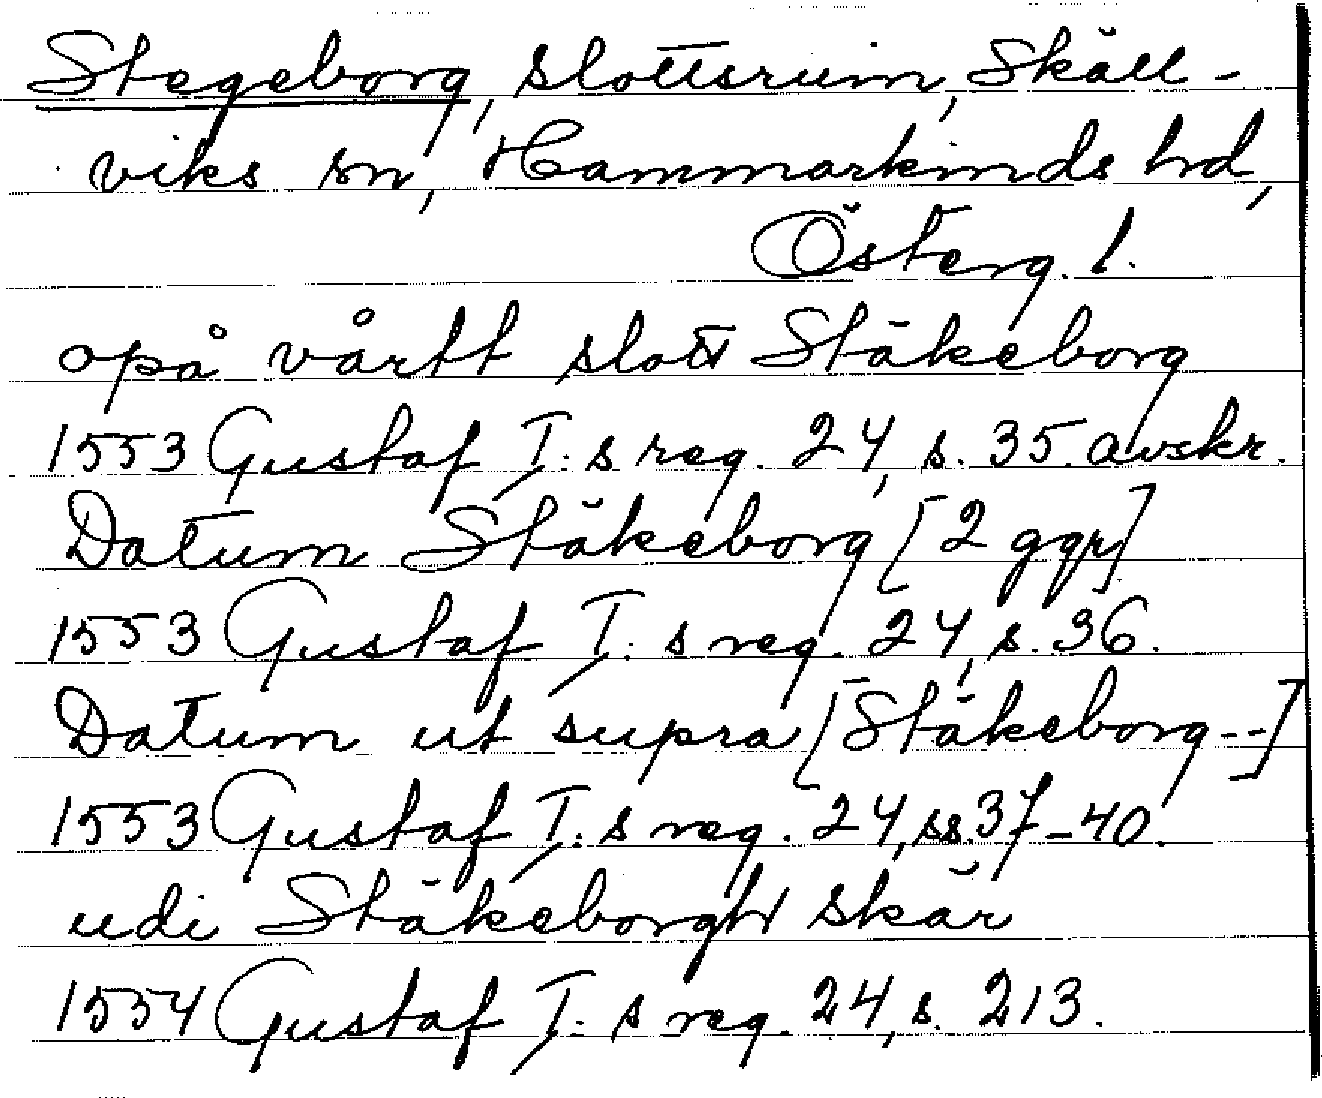 Stegeborg, slottsruin, Skäll-
viks sn, Hammarkinds hd,
Österg. l.
opå vårtt slott Stäkeborg
1553 Gustaf I:s reg. 24, s. 35. avskr.
Datum Stäkeborg [2 ggr]
1553 Gustaf I:s reg. 24, s. 36.
Datum ut supra [Stäkeborg--]
1553 Gustaf I:s reg. 24, ss. 37-40.
udi Stäkeborgh skär
1554 Gustaf I:s reg. 24, s. 213.